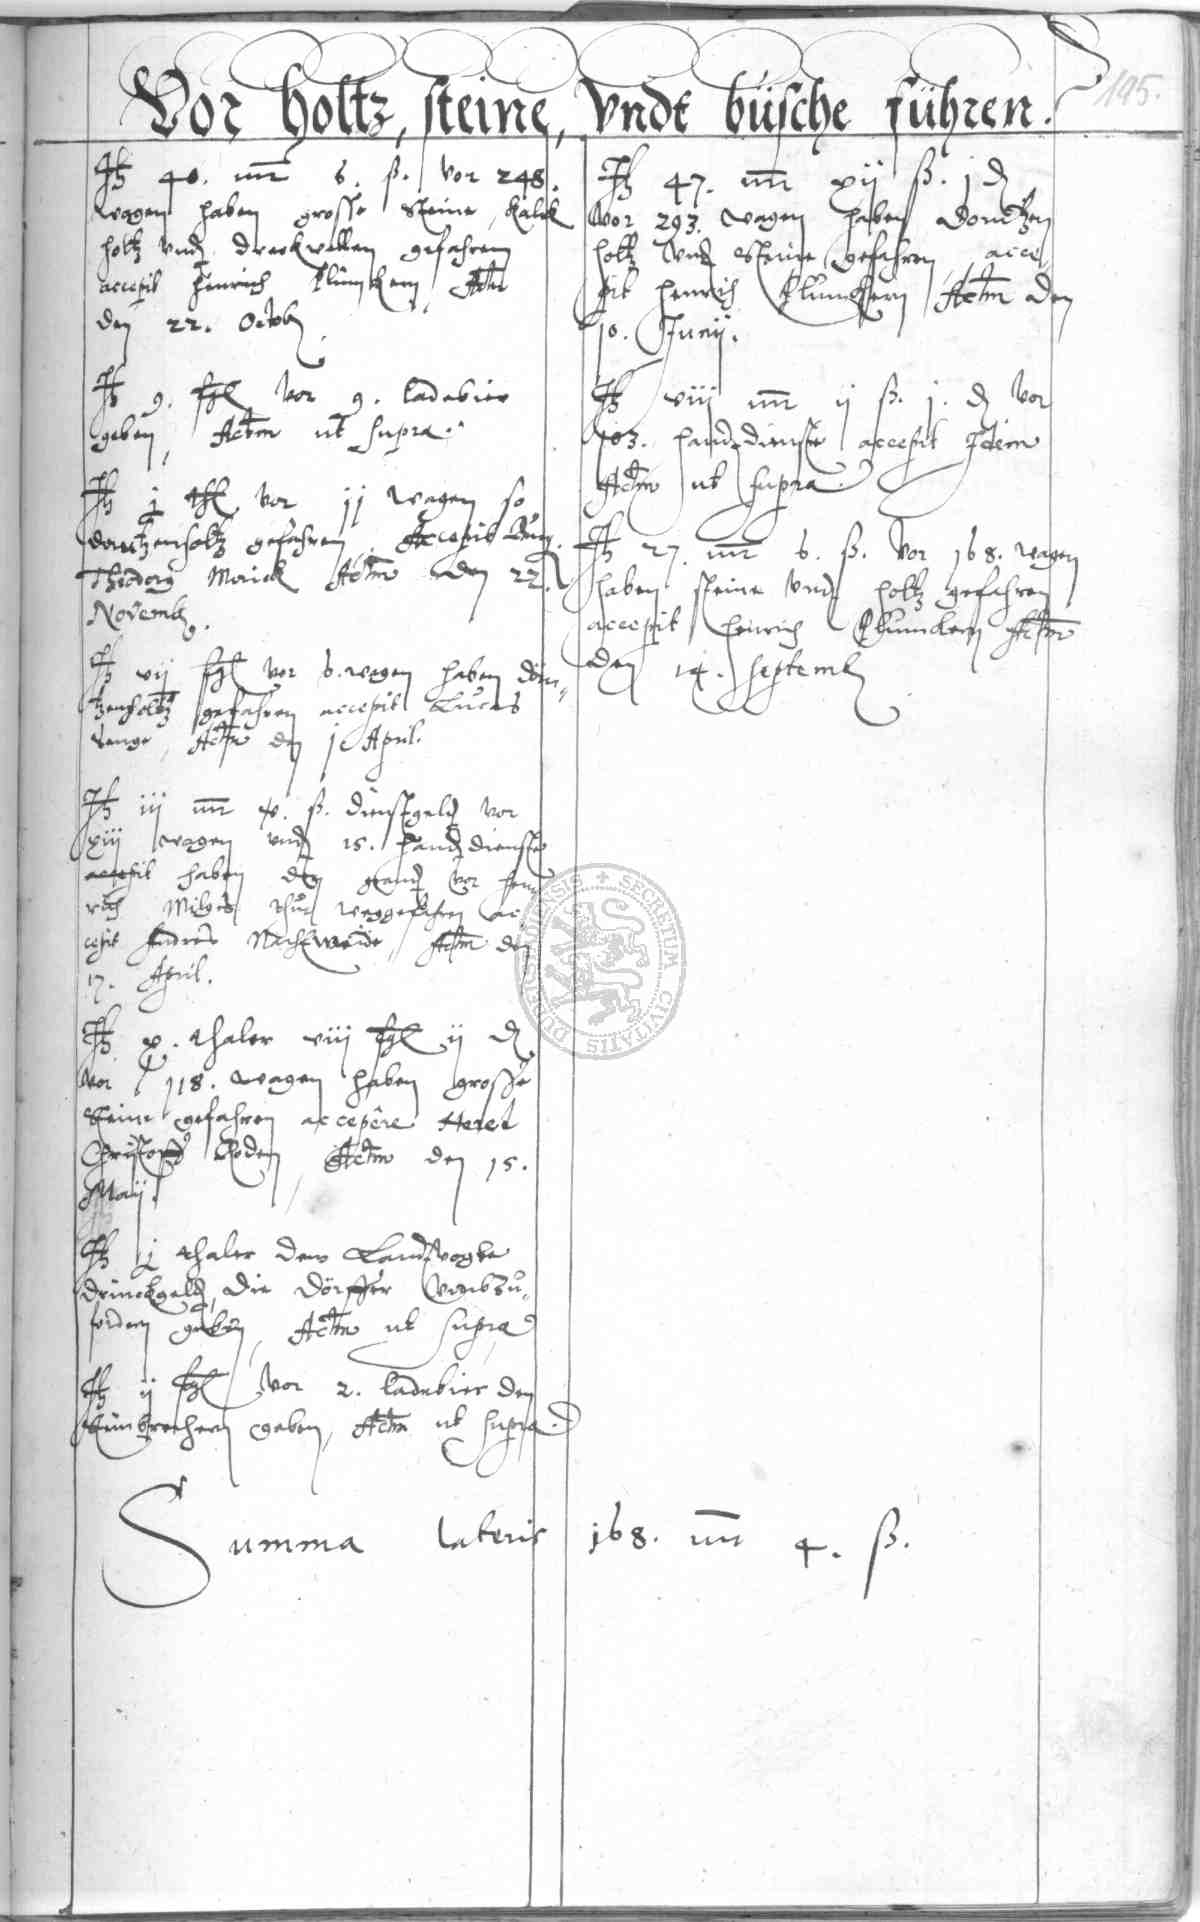 195.
Vor holtz, steine, vndt büsche führen.
Itz 40. mr 6. ß. vor 248.
wagen haben grosse steine, kalck
holtz vnd dreckwellen gefahren
accepit Henrich Klumckern, Actm
den 22. Octob
Itz 9. fgl vor 9. ladebier
geben, Actm ut supra.
Itz j thl vor jj wagen so
dorntzenholtz gefahren, Accepit
Theodorg Morick Actm den 22.
Novemb.
Itz vij fgl vor 6. wagen haben dörn-
tzenholtz gefahren accepit Lucas
Lange, Actm den j April.
Itz iij mr 4. ß. dienstgeld vor
xiij wagen vnd 15. handdienste
accepit haben den vor Hen-
rich thür weggefahren ac-
cepit Andres Nachtweide, Actm den
17. April.
Itz x. thaler viij fgl ij d
vor 118. wagen haben grosse
steine gefahren accepêre
Christoff Roden, Actm den 15.
Maij.
Itz j thaler dem Landvogte
drinckgeld, die dörffer vmbzu-
fordern geben, Actm ut supra
Itz ij fgl vor 2. ladebier den
steinbrechern geben, Actm ut supra.
Itz 47. mr xij ß. j d
vor 293. wagen haben dorntzen
holtz vnd steine gefahren, acce-
pit Henrich Klumckern Actm den
10. Junij.
Itz viij mr ij ß. j. d vor
103. handdienste accepit Idem
Actm ut supra
Itz 27. mr 6. ß. vor 168. wagen
haben steine vnd holtz gefahren
accepit Henrich Klumckern Actm
den 14. Septemb
SECRETUM CIVITATIS
Summa lateris 168. mr 4. ß.